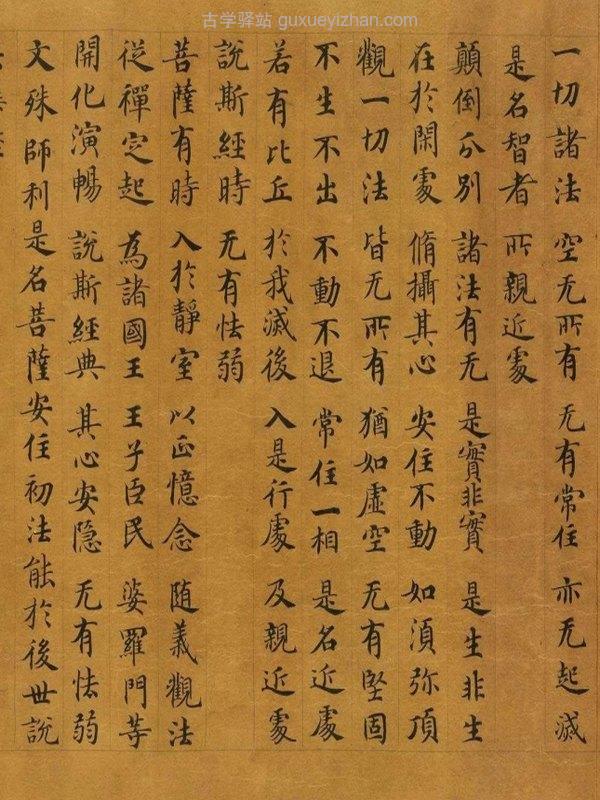 古学驿站 guxueyizhan.com
一切諸法 空无所有 无有常住 亦无起滅
是名智者 所親近處
顛倒分別 諸法有无 是實非實 是生非生
在於閑處 脩攝其心 安住不動 如湏弥頂
觀一切法 皆无所有 猶如虛空 无有堅固
不生不出 不動不退 常住一相 是名近處
若有比丘 於我滅後 入是行處 及親近處
說斯經時 无有怯弱
菩薩有時 入於靜室 以正憶念 随義觀法
従禪定起 為諸國王 王子臣民 婆羅門等
開化演暢 說斯經典 其心安隐 无有怯弱
文殊師利是名菩薩安住初法能於後世說